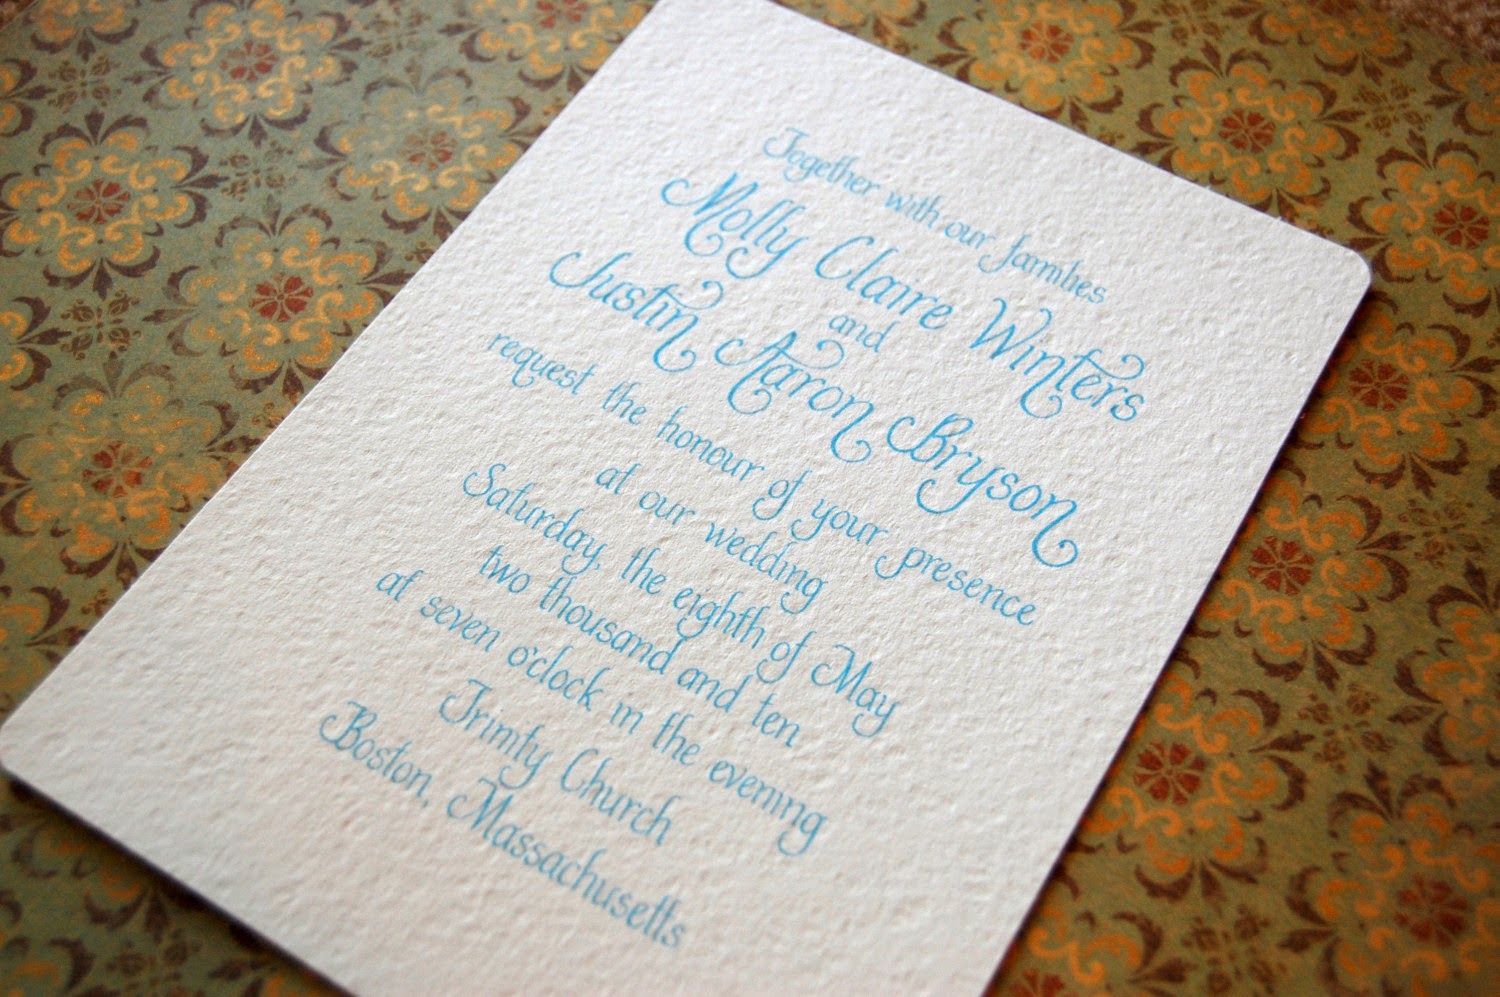 Together with our families
Molly Claire Winters
and
Justin Aaron Bryson
request the honour of your presence
at our wedding
Saturday, the eighth of May
two thousand and ten
at seven o'clock in the evening
Trinity Church
Boston, Massachusetts